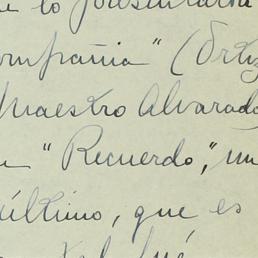 e lo presentaba
ompañia" (Ortiz
Maestro Alvarado
"Recuerdo," un
último, que es